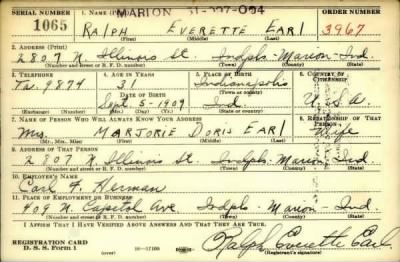 SERIAL NUMBER 1. NAME (Print) MARION 51-097-094 ORDER NUMBER
1065 RALPH EVERETTE EARL 3967
(First) (Middle) (Last)
2. ADDRESS (Print)
2807 N. Illinois St. Indpls-Marion-Ind.
(Number and street or R. F. D. number) (Town) (County) (State)
3. TELEPHONE 4. AGE IN YEARS 5. PLACE OF BIRTH 6. COUNTRY OF CITIZENSHIP
Ta. 9874 31 Indianapolis
DATE OF BIRTH (Town or county)
Sept. 5-1909 Ind U.S.A.
(Exchange) (Number) (Mo.) (Day) (Yr.) (State or country)
7. NAME OF PERSON WHO WILL ALWAYS KNOW YOUR ADDRESS 8. RELATIONSHIP OF THAT PERSON
Mrs. MARJORIE DORIS EARL Wife
(Mr., Mrs., Miss) (First) (Middle) (Last)
9. ADDRESS OF THAT PERSON
2807 N. Illinois St. Indpls-Marion-Ind
(Number and street or R. F. D. number) (Town) (County) (State)
10. EMPLOYER'S NAME
Carl F. Herman
11. PLACE OF EMPLOYMENT OR BUSINESS
409 N. Capitol Ave Indpls-Marion-Ind
(Number and street or R. F. D. number) (Town) (County) (State)
I AFFIRM THAT I HAVE VERIFIED ABOVE ANSWERS AND THAT THEY ARE TRUE.
REGISTRATION CARD
D. S. S. Form 1 (over) 16-17105 Ralph Everette Earl
(Registrant's signature)